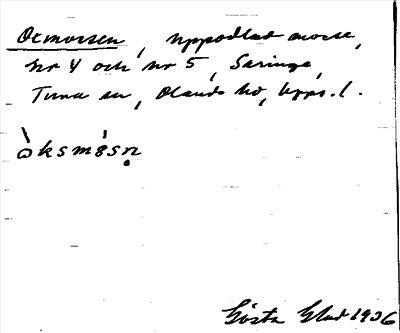 Oxmossen, uppodlad mosse,
Nr 4 och Nr 5, Saringe,
Tuna sn, Olands hd, Upps. l.
òksmósn̥
Gösta Glad 1936